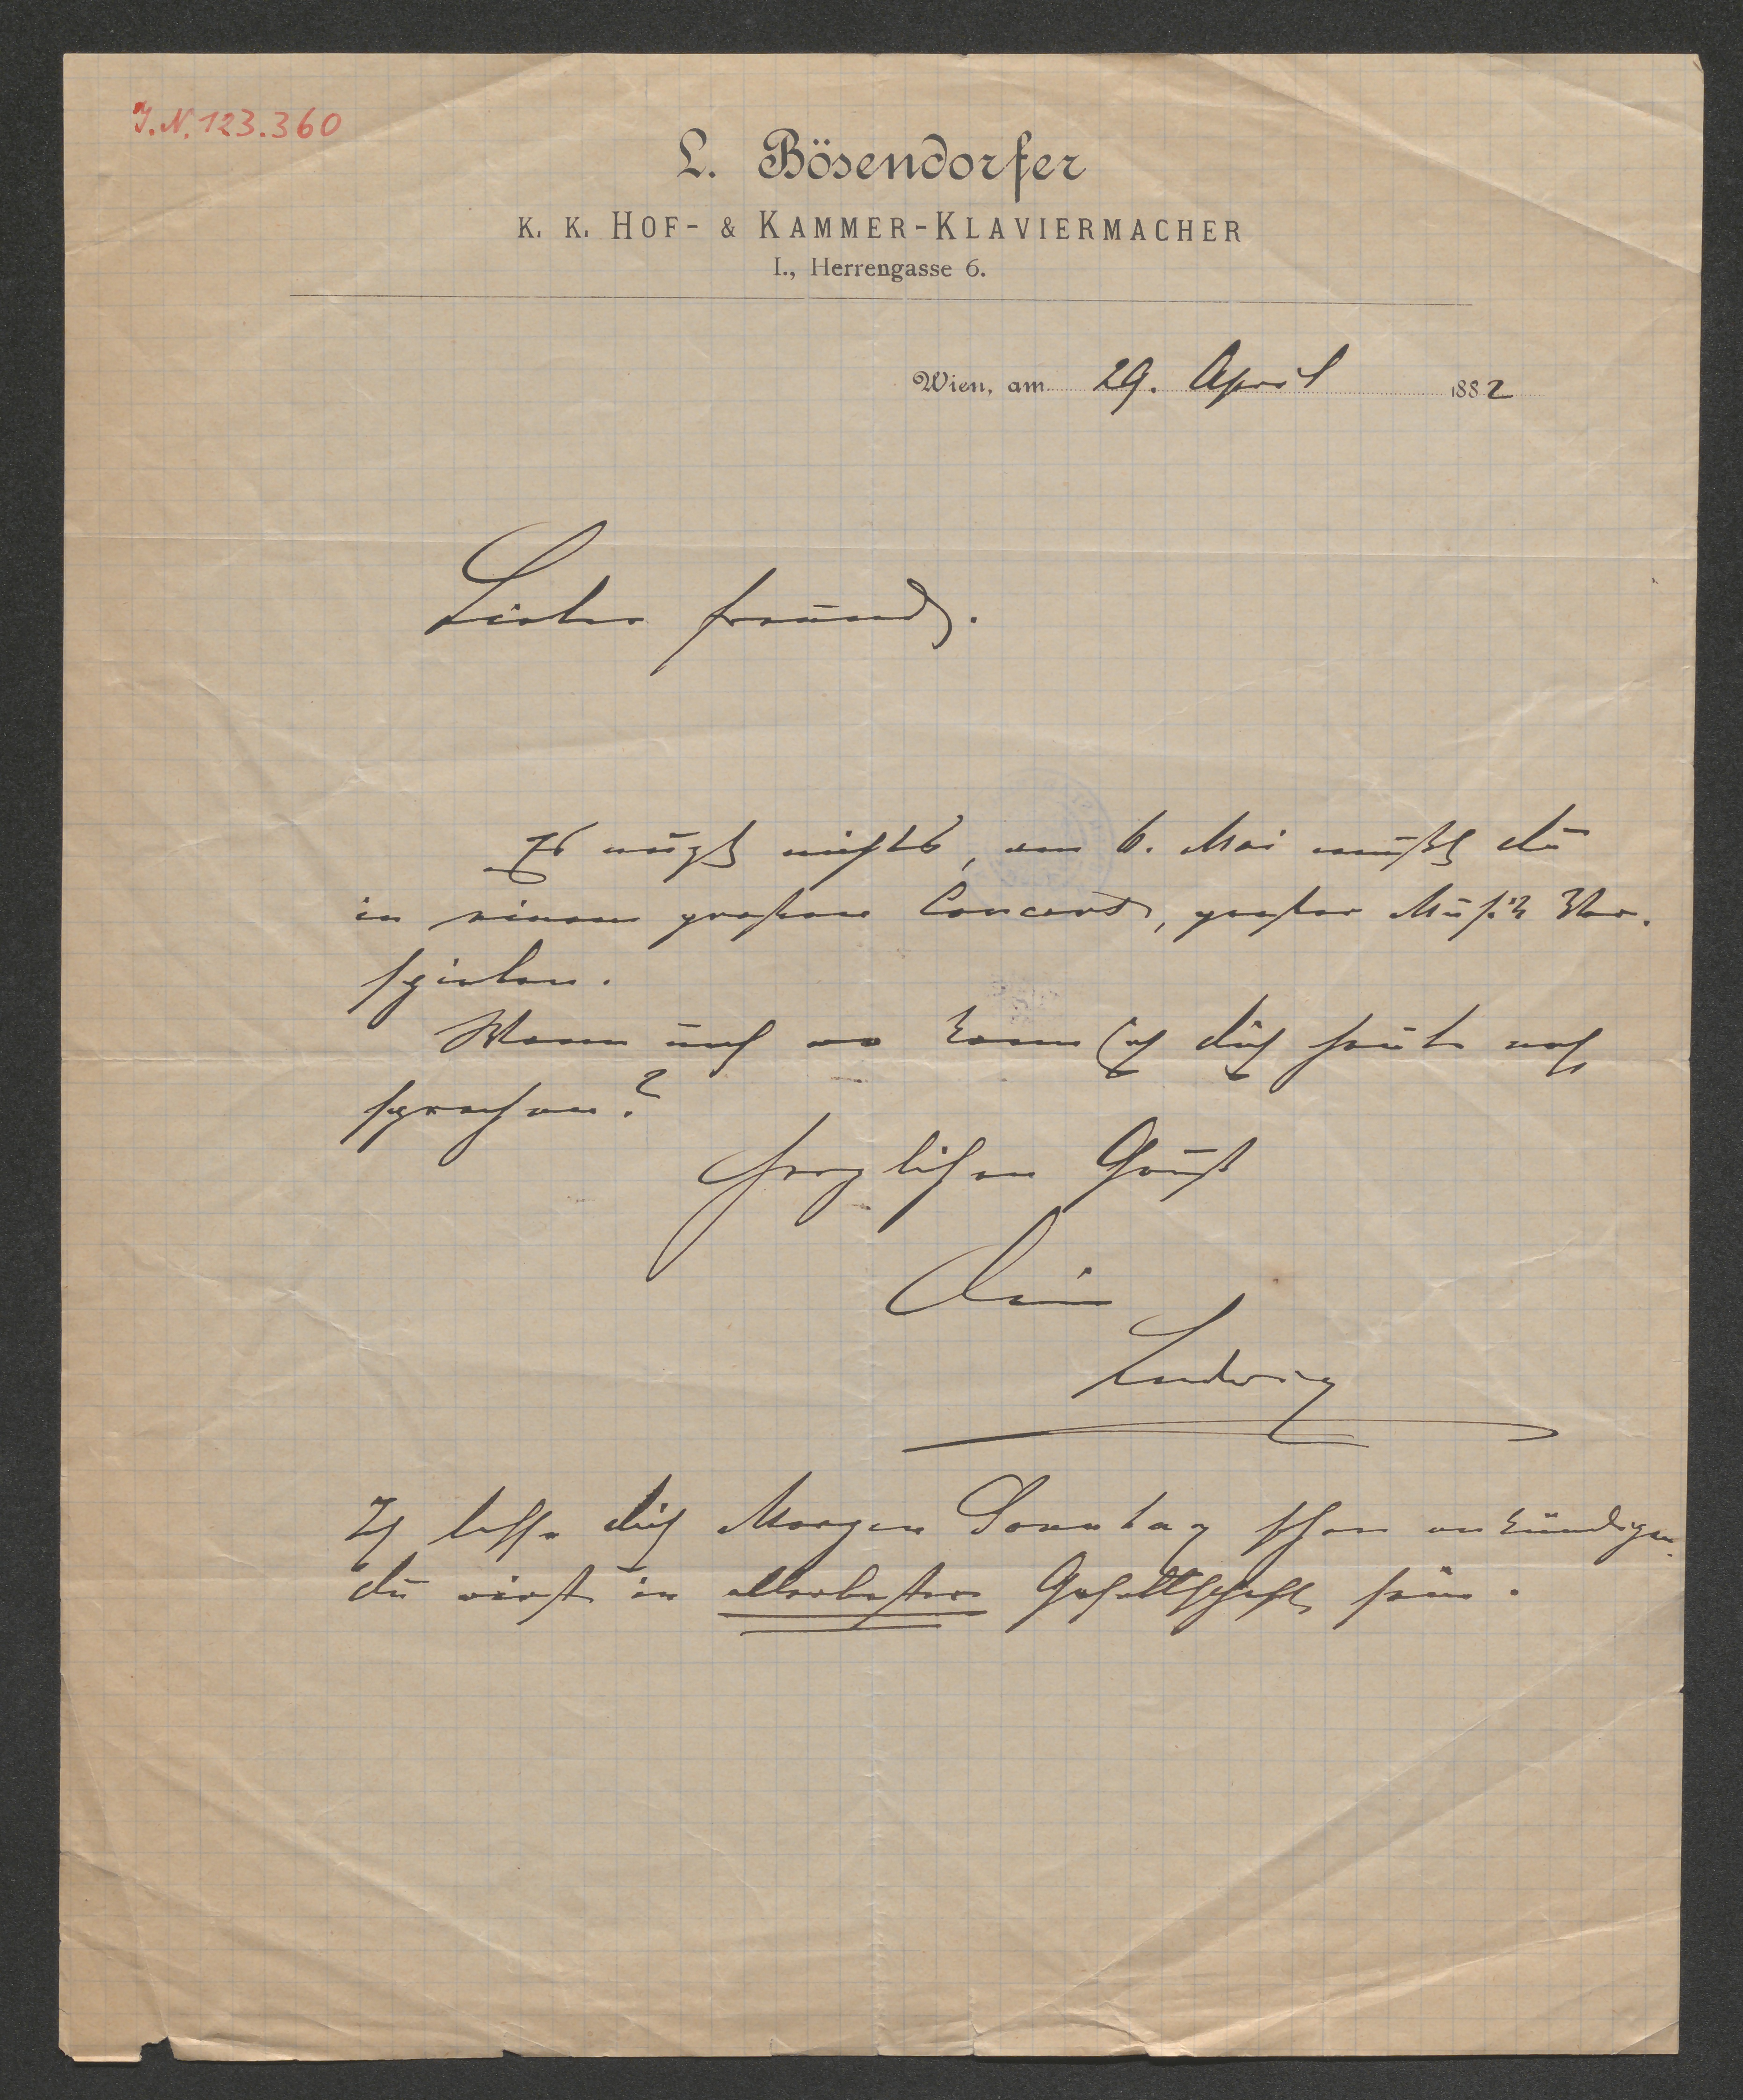 I.N. 123.360
L. Bösendorfer
K. K. HOF- & KAMMER-KLAVIERMACHER
I., Herrengasse 6.
Wien, am 29. April 1882
Lieber Freund.
Es nützt nichts, am 6. Mai mußt du
in einem großen Concert, großer Musik Vor-
spielen.
Wann und wo kann ich dich heute noch
sprechen?
Herzlichen Gruß
Dein
Ludwig
Ich lasse dich Morgen Sonntag schon ankündigen.
du wirst in allerbester Gesellschaft sein.